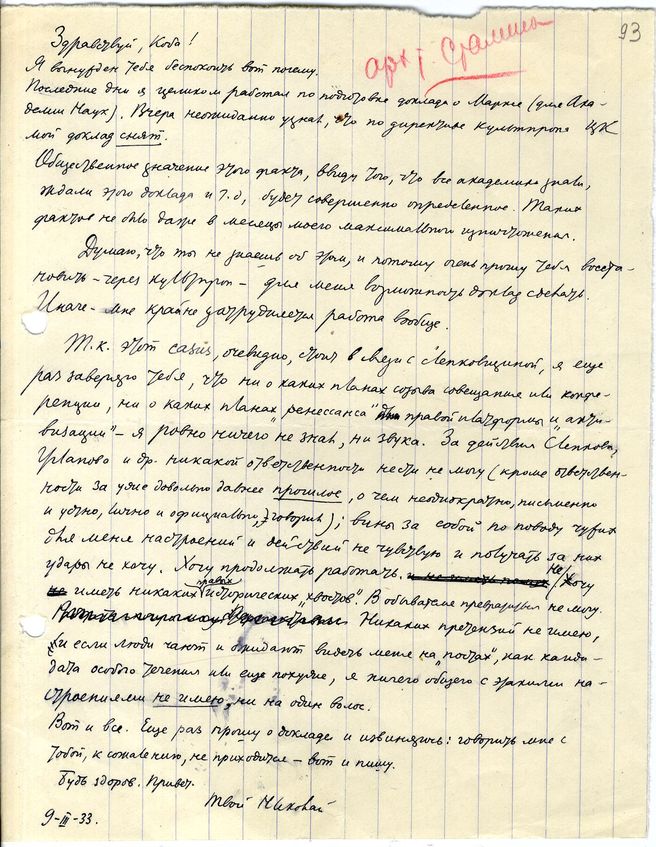 93
арх т. Сталина
Здравствуй, Коба!
Я вынужден тебя беспокоить вот почему.
Последние дни я целиком работал по подготовке доклада о Марксе (для Ака-
демии Наук). Вчера неожиданно узнал, что по директиве культпропа ЦК
мой доклад снят.
Общественное значение этого факта, ввиду того, что все академики знали,
ждали этого доклада и т.д, будет совершенно определенное. Таких
фактов не было даже в месяцы моего максимального уничтожения.
Думаю, что ты не знаешь об этом, и потому очень прошу тебя восста-
новить – через культпроп – для меня возможность доклад сделать.
Иначе – мне крайне затруднится работа вообще.
Т.к. этот casus, очевидно, стоит в связи с Слепковщиной, я еще
раз заверяю тебя, что ни о каких планах созыва совещания или конфе-
ренции, ни о каких планах „ренессанса" правой платформы и „акти-
визации" – я ровно ничего не знал, ни звука. За действия Слепкова,
Угланова и др. никакой ответственности нести не могу (кроме ответствен-
ности за уже довольно давнее прошлое, о чем неоднократно, письменно
и устно, лично и официально, говорил); вины за собой по поводу чужих
для меня настроений и действий не чувствую и получать за них
удары не хочу. Хочу продолжать работать. Не хочу
иметь никаких правых „исторических хвостов". В обывателя превращаться не могу.
Никаких претензий не имею,
и если люди чают и ожидают видеть меня на „постах", как канди-
дата особого течения или еще похуже, я ничего общего с этакими на-
строениями не имею, ни на один волос.
Вот и все. Еще раз прошу о докладе и извиняюсь: говорить мне с
тобой, к сожалению, не приходится – вот и пишу.
Будь здоров. Привет.
Твой Николай
9-III-33.